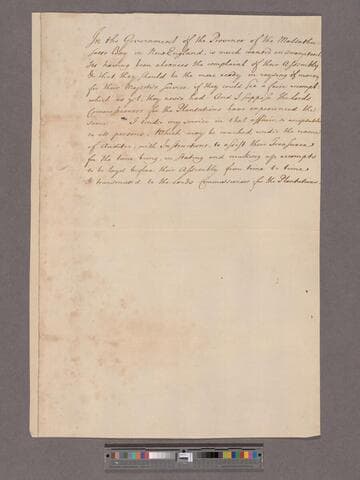 In the Government of the Province of the Massathu-
setts Bay in New England, is much wanted an accomptant
Its having been alwayes the complaint of their Assembly
& that they should be the more ready in raysing of money
for their Majesties service if they could see a faire accompt
which as yet, they never had And I suppose the Lords
Commissioners for the Plantations have experienced the
same. I tender my service in that affair as acceptable
to all persons. Which may be marked under the name
of Auditor, with Instructions to assist their Treasurer
for the time being, in stating and making up accompts
to be layd before their Assembly from time to time
& transmitted to the Lords Commissioners for the Plantations